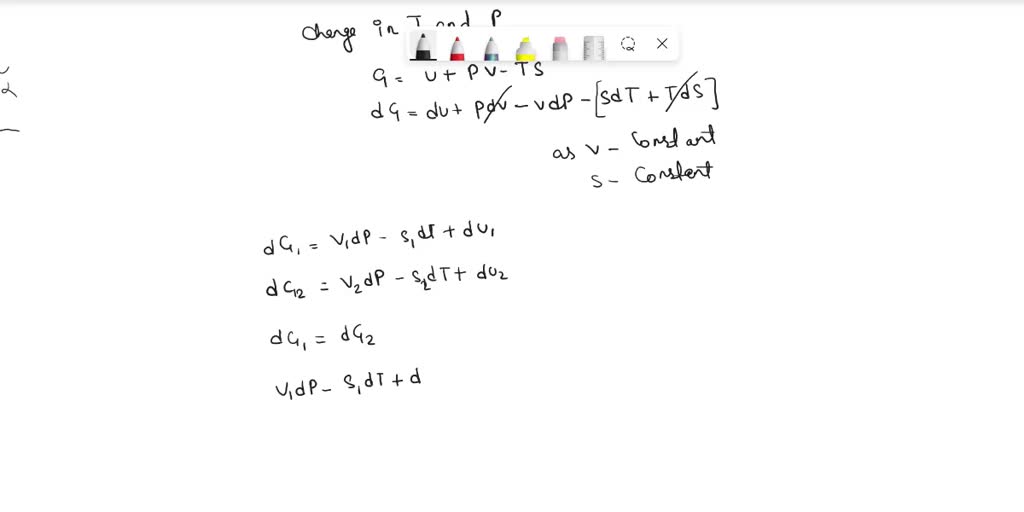 change in T and P
G = U + PV - TS
dG = dU + PdV - VdP - [SdT + TdS]
as V - Constant
S - Constant
dG₁ = V₁dP - S₁dT + dU₁
dG₂ = V₂dP - S₂dT + dU₂
dG₁ = dG₂
V₁dP - S₁dT + d